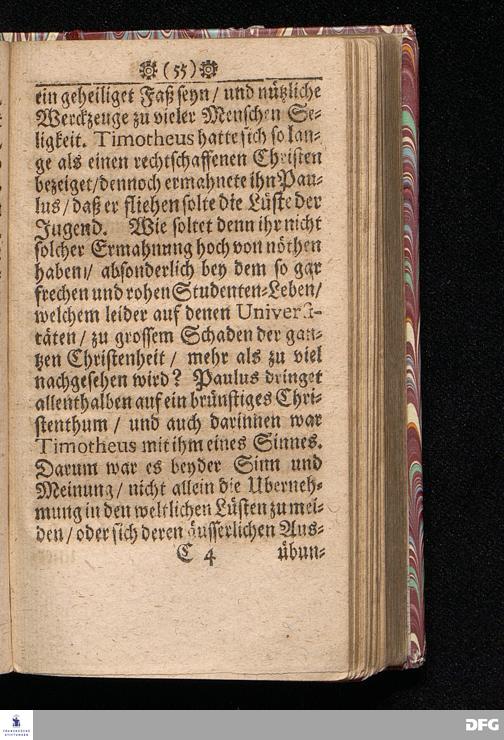 (55)
ein geheiliget Faß seyn / und nützliche
Werckzeuge zu vieler Menschen Se-
ligkeit. Timotheus hatte sich so lan-
ge als einen rechtschaffenen Christen
bezeiget / dennoch ermahnete ihn Pau-
lus / daß er fliehen solte die Lüste der
Jugend. Wie soltet denn ihr nicht
solcher Ermahnung hoch von nöthen
haben / absonderlich bey dem so gar
frechen und rohen Studenten-Leben /
welchem leider auf denen Universi-
täten / zu grossem Schaden der gan-
tzen Christenheit / mehr als zu viel
nachgesehen wird? Paulus dringet
allenthalben auf ein brünstiges Chri-
stenthum / und auch darinnen war
Timotheus mit ihm eines Sinnes.
Darum war es beyder Sinn und
Meinung / nicht allein die Uberneh-
mung in den weltlichen Lüsten zu mei-
den / oder sich deren äusserlichen Aus-
C 4 übun-
FRANCKESCHE STIFTUNGEN
DFG